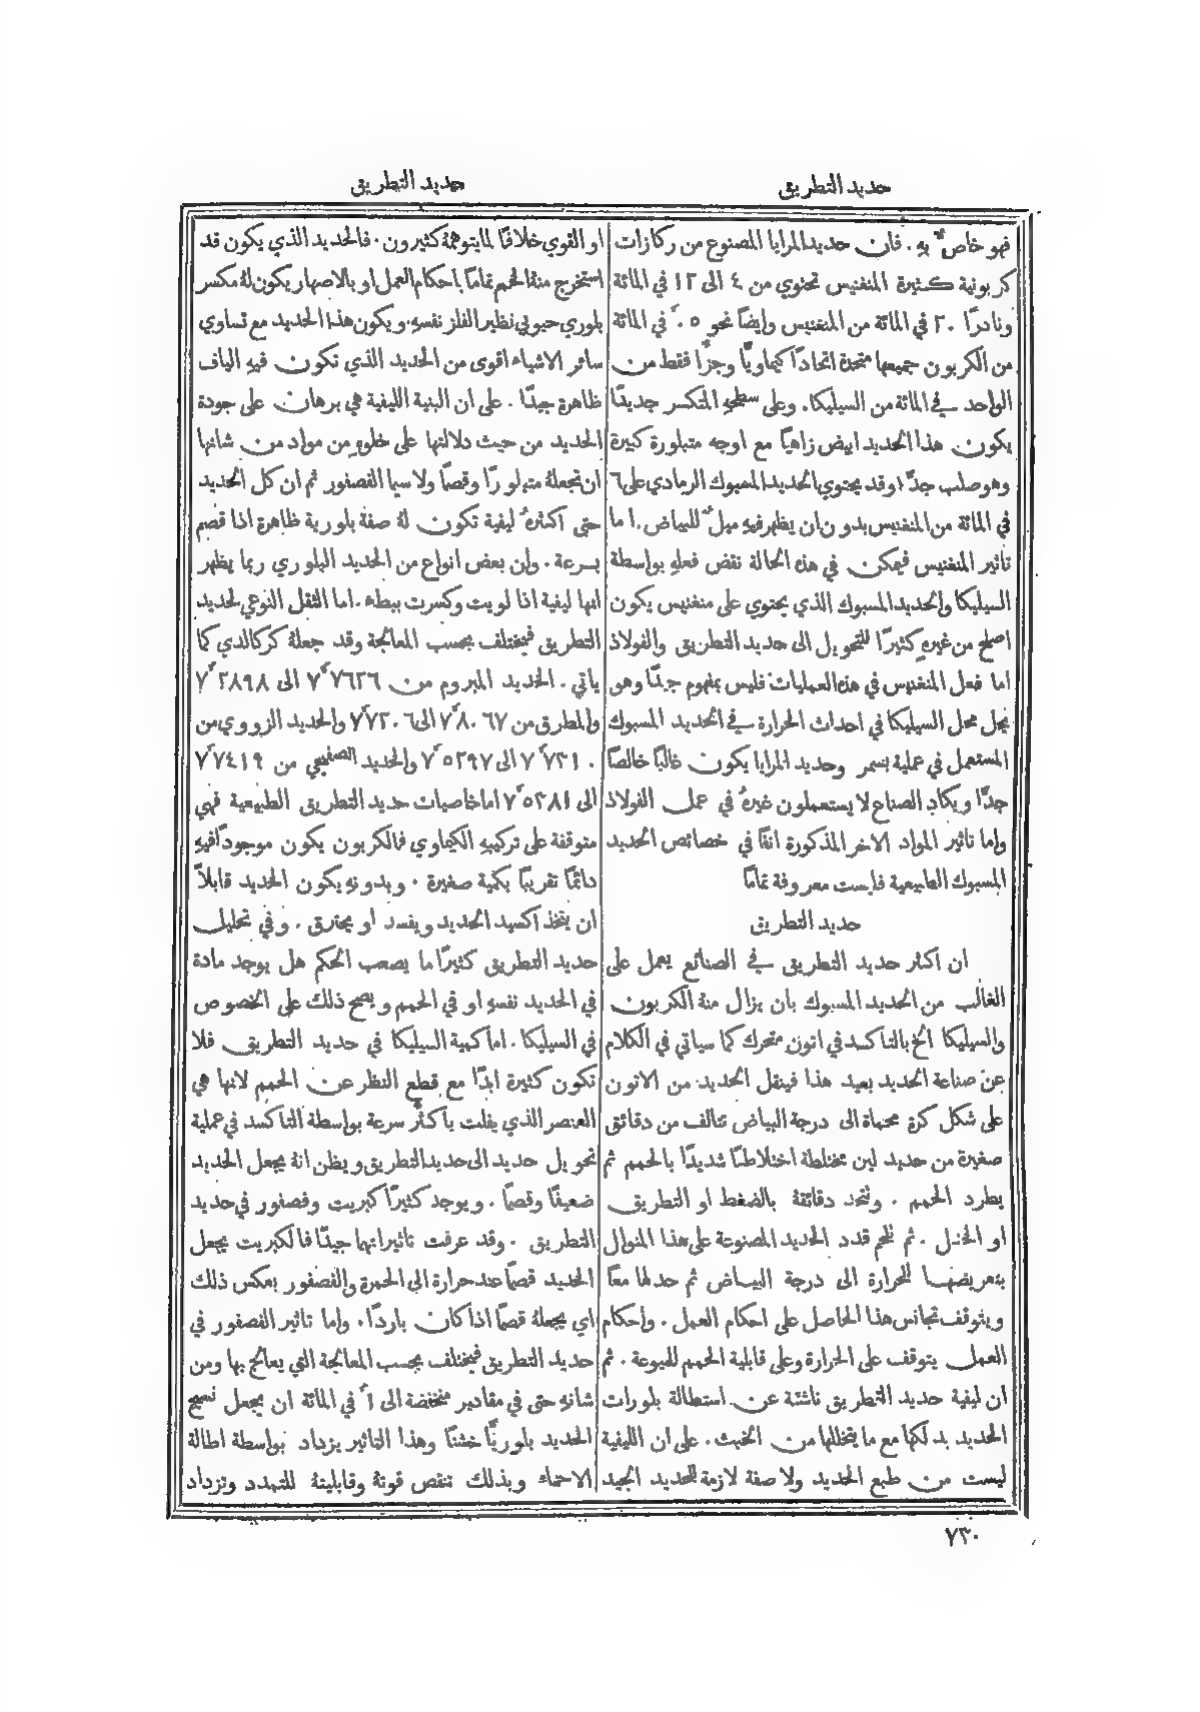 حديد التطريق
حديد التطريق
فهو خاصٌّ بهِ . فان حديد المرايا المصنوع من ركازات
كربونية كثيرة المنغنيس تحتوي من ٤ الى ١٢ في المائة
ونادرًا ٢٠ في المائة من المنغنيس وايضًا نحو ٥٠ في المائة
من الكربون جميعها متحدة اتحادًا كيماويًّا وجزءًا فقط من
الواحد في المائة من السيليكا. وعلى سطحهِ المتكسر جديدًا
يكون هذا الحديد ابيض زاهيًا مع اوجه متبلورة كبيرة
وهو صلب جدًّا وقد يحتوي الحديد المسبوك الرمادي على ٦
في المائة من المنغنيس بدون ان يظهر فيهِ ميلٌ للبياض. اما
تاثير المنغنيس فيمكن في هذه الحالة نقض فعلهِ بواسطة
السيليكا والحديد المسبوك الذي يحتوي على منغنيس يكون
اصلح من غيرهِ كثيرًا للتحويل الى حديد التطريق والفولاذ
اما فعل المنغنيس في هذه العمليات فليس بمفهوم جيدًا وهو
يحل محل السيليكا في احداث الحرارة في الحديد المسبوك
المستعمل في عملية بسمر وحديد المرايا يكون غالبًا خالصًا
جدًّا ويكاد الصناع لا يستعملون غيرهُ في عمل الفولاذ
واما تاثير المواد الاخر المذكورة انفًا في خصائص الحديد
المسبوك الطبيعية فليست معروفة تمامًا
حديد التطريق
ان اكثر حديد التطريق في الصنائع يعمل على
الغالب من الحديد المسبوك بان يزال منهُ الكربون
والسيليكا الخ بالتاكسد في اتون متحرك كما سياتي في الكلام
عن صناعة الحديد بعيد هذا فينقل الحديد من الاتون
على شكل كرة محماة الى درجة البياض تتالف من دقائق
صغيرة من حديد لين مختلطة اختلاطًا شديدًا بالحمم ثم
يطرد الحمم . وتتحد دقائقهُ بالضغط او التطريق
او الخذل . ثم تلحم قدد الحديد المصنوعة على هذا المنوال
بتعريضها للحرارة الى درجة البياض ثم حدلها معًا
ويتوقف تجانس هذا الحاصل على احكام العمل . واحكام
العمل يتوقف على الحرارة وعلى قابلية الحمم للميوعة . ثم
ان ليفية حديد التطريق ناشئة عن استطالة بلورات
الحديد بدلكها مع ما يتخللها من الخبث. على ان الليفية
ليست من طبع الحديد ولا صفة لازمة للحديد الجيد
او القوي خلافًا لما يتوهمهُ كثيرون. فالحديد الذي يكون قد
استخرج منهُ الحمم تمامًا باحكام العمل او بالاصهار يكون لهُ مكسر
بلوري حبوبي نظير الفلز نفسهِ. ويكون هذا الحديد مع تساوي
سائر الاشياء اقوى من الحديد الذي تكون فيهِ الياف
ظاهرة جيدًا . على ان البنية الليفية هي برهان على جودة
الحديد من حيث دلالتها على خلوهِ من مواد من شانها
ان تجعلهُ متبلورًا وقصمًا ولاسيما الفصفور ثم ان كل الحديد
حتى اكثرهُ ليفية تكون لهُ صفة بلورية ظاهرة اذا قصم
بسرعة . وان بعض انواع من الحديد البلوري ربما يظهر
انها ليفية اذا لويت وكسرت ببطء. اما الثقل النوعي لحديد
التطريق فيختلف بحسب المعالجة وقد جعلهُ كركالدي كما
ياتي . الحديد المبروم من ٧٬٧٦٢٦ الى ٧٬٢٨٩٨
والمطرق من ٧٬٨٠٦٧ الى ٧٬٧٢٠٦ والحديد الزووي من
٧٬٧٢١٠ الى ٧٬٥٢٩٧ والحديد الصفيحي من ٧٬٧٤١٩
الى ٧٬٥٣٨١ اما خاصيات حديد التطريق الطبيعية فهي
متوقفة على تركيبهِ الكيماوي فالكربون يكون موجودًا فيهِ
دائمًا تقريبًا بكمية صغيرة . وبدونهِ يكون الحديد قابلاً
ان يتخذ اكسيد الحديد ويفسد او يحترق . وفي تحليل
حديد التطريق كثيرًا ما يصعب الحكم هل يوجد مادة
في الحديد نفسهِ او في الحمم ويصح ذلك على الخصوص
في السيليكا . اما كمية السيليكا في حديد التطريق فلا
تكون كثيرة ابدًا مع قطع النظر عن الحمم لانها هي
العنصر الذي يفلت باكثر سرعة بواسطة التاكسد في عملية
تحويل حديد الى حديد التطريق ويظن انهُ يجعل الحديد
ضعيفًا وقصمًا . ويوجد كثيرًا كبريت وفصفور في حديد
التطريق . وقد عرفت تاثيراتهما جيدًا فالكبريت يجعل
الحديد قصمًا عند حرارة الى الحمرة والفصفور بعكس ذلك
اي يجعلهُ قصمًا اذا كان باردًا. واما تاثير الفصفور في
حديد التطريق فيختلف بحسب المعالجة التي يعالج بها ومن
شانهِ حتى في مقادير منخفضة الى ١٬ في المائة ان يجعل نسيج
الحديد بلوريًّا خشنًا وهذا التاثير يزداد بواسطة اطالة
الاحماء وبذلك تنقص قوتهُ وقابليتهُ للتمدد وتزداد
٧٣٠